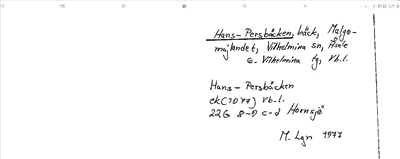 Hans-Persbäcken, bäck, Malgo-
majlandet, Vilhelmina sn, Åsele
o. Vilhelmina tg, Vb.l.
Hans-Persbäcken
ek (1077) Vb.l.
22G 8-9 c-d Hornsjö
M. Lgn 1977